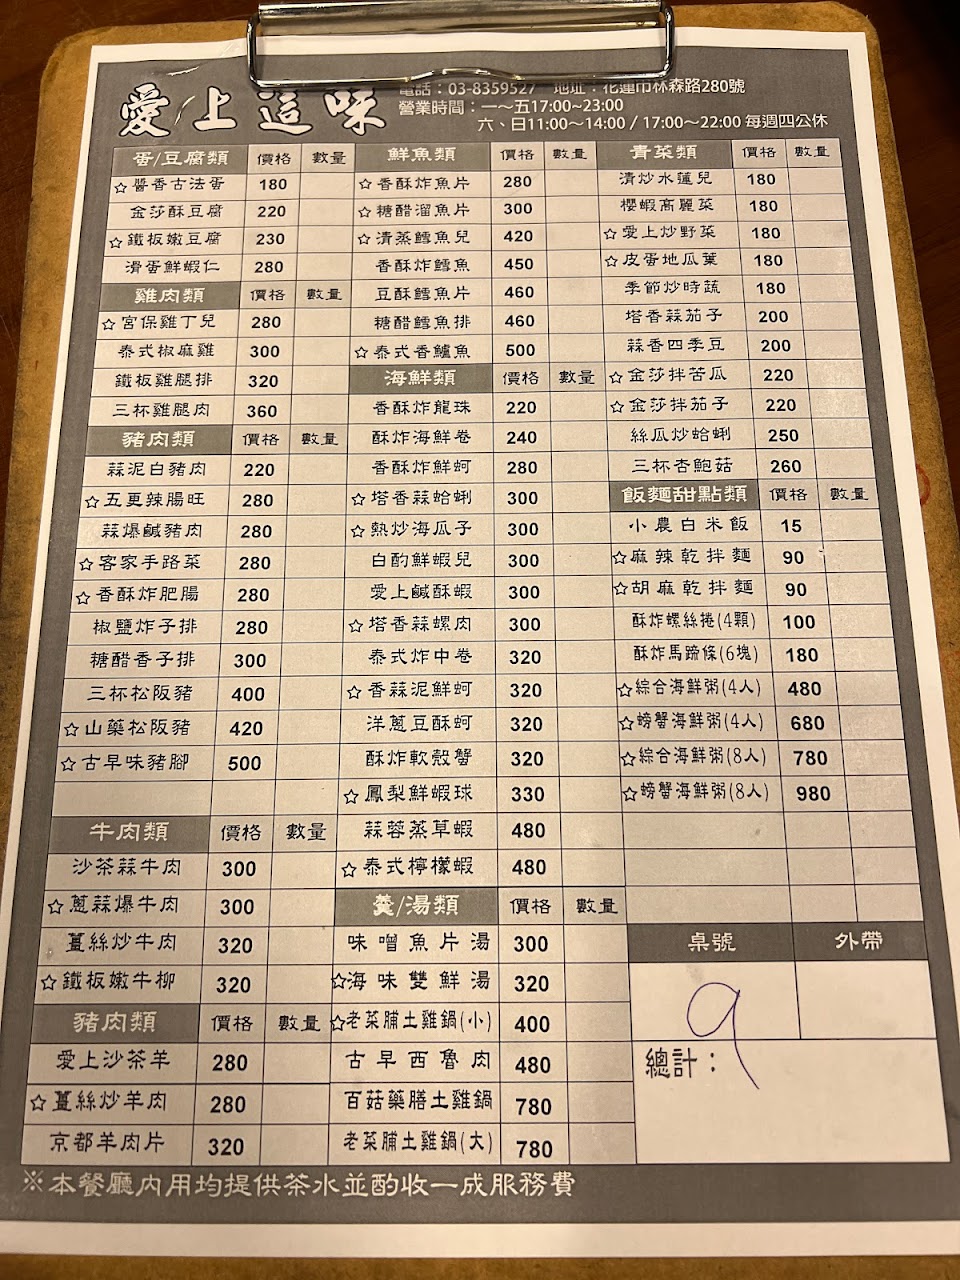 愛上這味
電話：03-8359527 地址：花蓮市林森路280號
營業時間：一～五17:00~23:00
六、日11:00～14:00 / 17:00～22:00 每週四公休
蛋/豆腐類 價格 數量
☆醬香古法蛋 180
金莎酥豆腐 220
☆鐵板嫩豆腐 230
滑蛋鮮蝦仁 280
雞肉類 價格 數量
☆宮保雞丁兒 280
泰式椒麻雞 300
鐵板雞腿排 320
三杯雞腿肉 360
豬肉類 價格 數量
蒜泥白豬肉 220
☆五更辣腸旺 280
蒜爆鹹豬肉 280
☆客家手路菜 280
☆香酥炸肥腸 280
椒鹽炸子排 280
糖醋香子排 300
三杯松阪豬 400
☆山藥松阪豬 420
☆古早味豬腳 500
牛肉類 價格 數量
沙茶蒜牛肉 300
☆蔥蒜爆牛肉 300
薑絲炒牛肉 320
☆鐵板嫩牛柳 320
豬肉類 價格 數量
愛上沙茶羊 280
☆薑絲炒羊肉 280
京都羊肉片 320
鮮魚類 價格 數量
☆香酥炸魚片 280
☆糖醋溜魚片 300
☆清蒸鱈魚兒 420
香酥炸鱈魚 450
豆酥鱈魚片 460
糖醋鱈魚排 460
☆泰式香鱸魚 500
海鮮類 價格 數量
香酥炸龍珠 220
酥炸海鮮卷 240
香酥炸鮮蚵 280
☆塔香蒜蛤蜊 300
☆熱炒海瓜子 300
白酌鮮蝦兒 300
愛上鹹酥蝦 300
☆塔香蒜螺肉 300
泰式炸中卷 320
☆香蒜泥鮮蚵 320
洋蔥豆酥蚵 320
酥炸軟殼蟹 320
☆鳳梨鮮蝦球 330
蒜蓉蒸草蝦 480
☆泰式檸檬蝦 480
羹/湯類 價格 數量
味噌魚片湯 300
☆海味雙鮮湯 320
☆老菜脯土雞鍋(小) 400
古早西魯肉 480
百菇藥膳土雞鍋 780
老菜脯土雞鍋(大) 780
青菜類 價格 數量
清炒水蓮兒 180
櫻蝦高麗菜 180
☆愛上炒野菜 180
☆皮蛋地瓜葉 180
季節炒時蔬 180
塔香蒜茄子 200
蒜香四季豆 200
☆金莎拌苦瓜 220
☆金莎拌茄子 220
絲瓜炒蛤蜊 250
三杯杏鮑菇 260
飯麵甜點類 價格 數量
小農白米飯 15
☆麻辣乾拌麵 90
☆胡麻乾拌麵 90
酥炸螺絲捲(4顆) 100
酥炸馬蹄條(6塊) 180
☆綜合海鮮粥(4人) 480
☆螃蟹海鮮粥(4人) 680
☆綜合海鮮粥(8人) 780
☆螃蟹海鮮粥(8人) 980
桌號 外帶
9
總計：
※本餐廳內用均提供茶水並酌收一成服務費